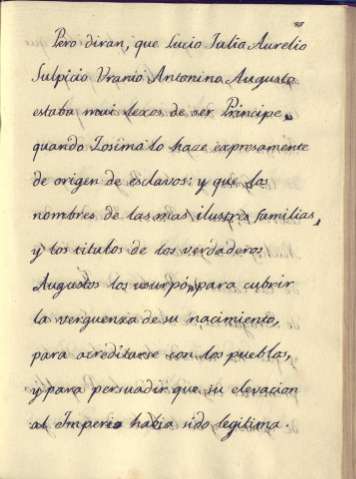 Pero diran, que Lucio Julio Aurelio
Sulpicio Uranio Antonino Augusto
estaba mui lexos de ser Principe,
quando Zosimo lo haze expresamente
de origen de esclavos: y que los
nombres de las mas ilustres familias,
y los titulos de los verdaderos
Augustos los usurpó, para cubrir
la verguenza de su nacimiento,
para acreditarse con los pueblos,
y para persuadir que su elevacion
al Imperio habia sido legitima.